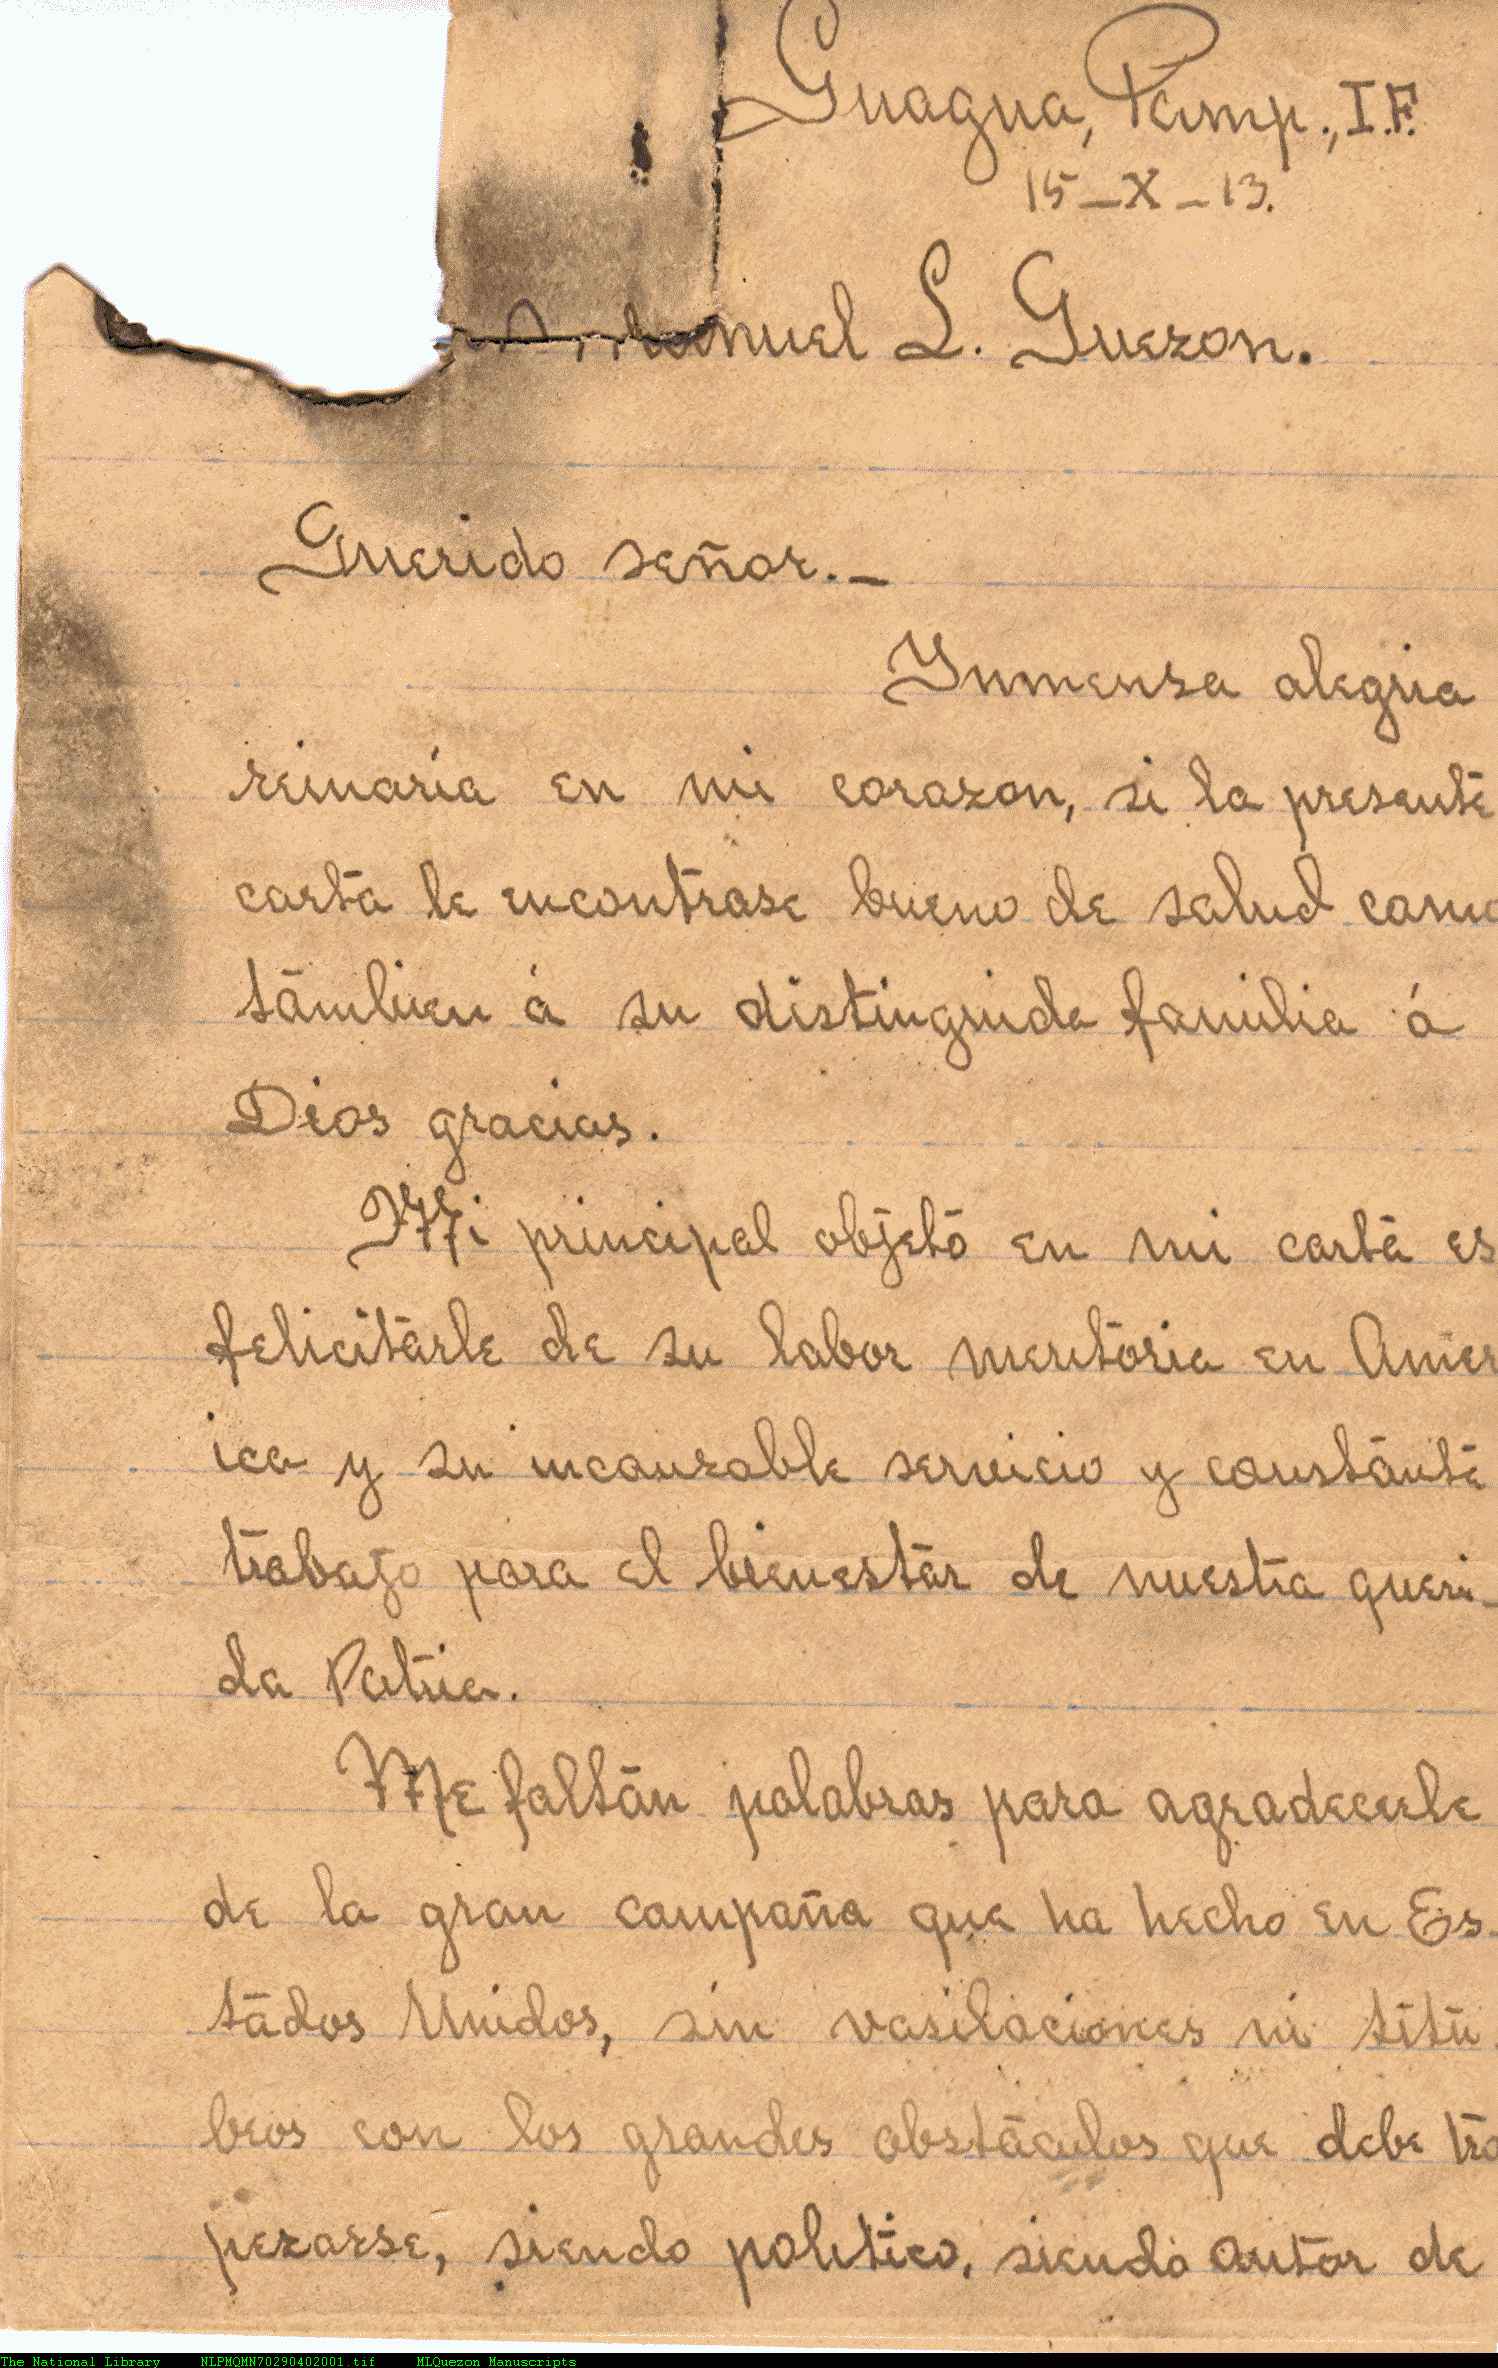 Guagua, Pamp., I.F.
15-X-13.
Manuel L. Quezon.
Querido señor.-
Ynmensa alegria
reinaría en mi corazon, si la presente
carta le encontrase bueno de salud como
tambien á su distinguida familia á
Dios gracias.
Mi principal objeto en mi carta es
felicitarle de su labor meritoria en Amer
ica y su incansable servicio y constante
trabajo para el bienestar de nuestra queri-
da Patria.
Me faltan palabras para agradecerle
de la gran campaña que ha hecho en Es-
tados Unidos, sin vasilaciones ni titu-
beos con los grandes obstáculos que debe tro
pezarse, siendo político, siendo autor de
The National Library NLPMQMN70290402001.tif MLQuezon Manuscripts